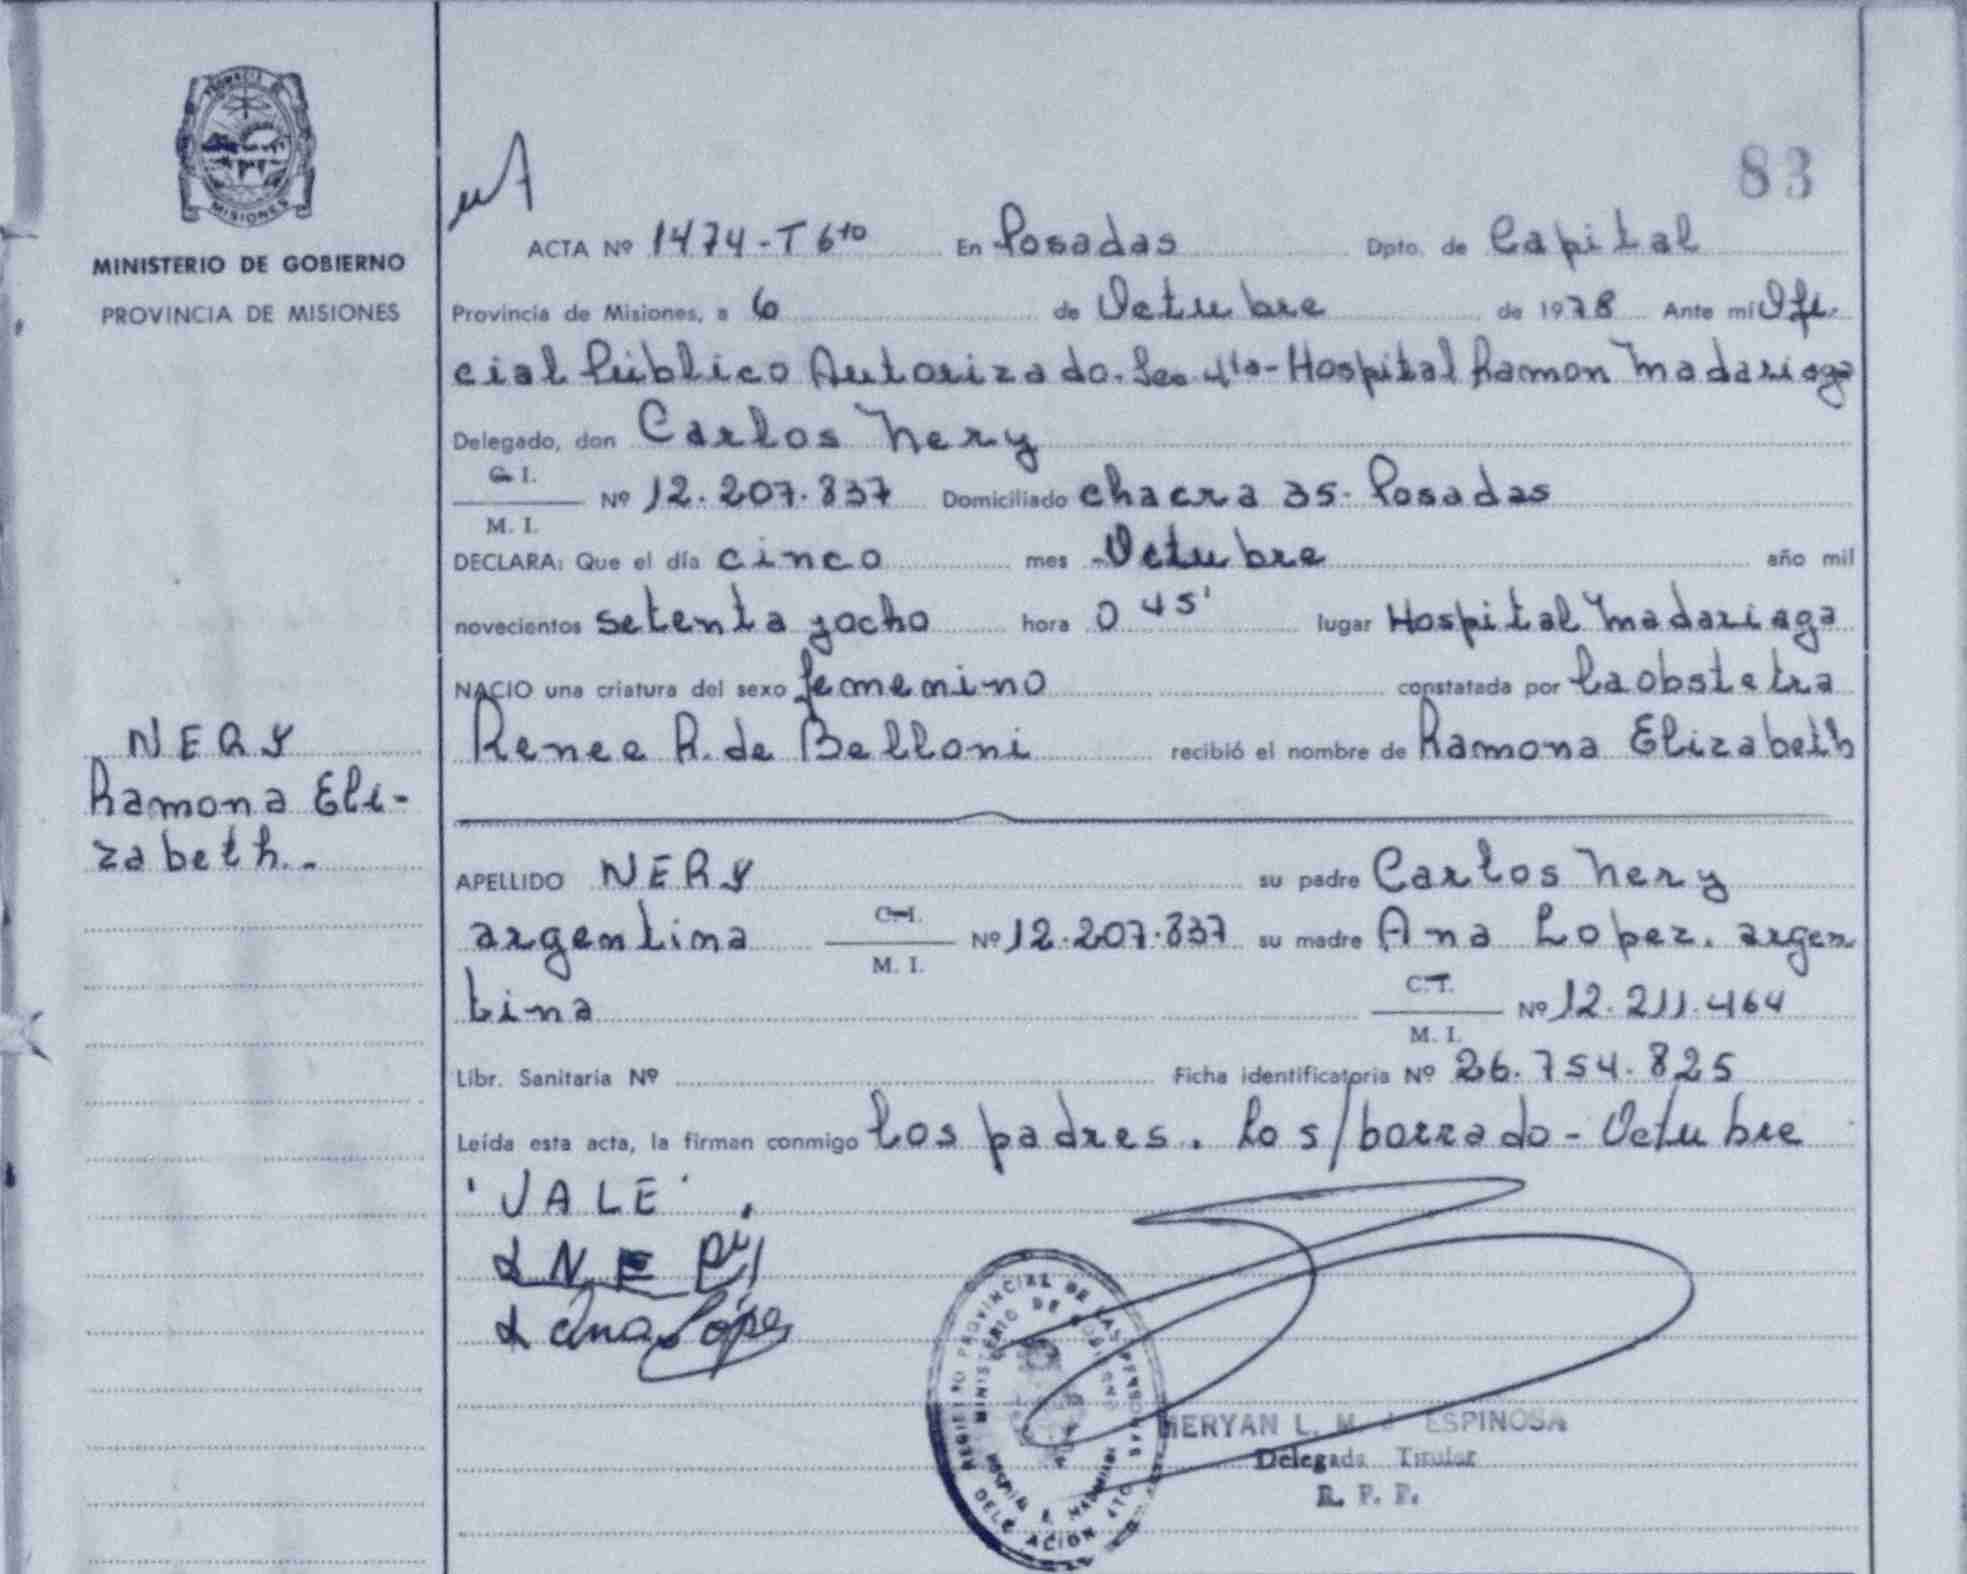 PROVINCIA DE
MISIONES
MINISTERIO DE GOBIERNO
PROVINCIA DE MISIONES
NERY
Ramona Eli-
zabeth.-
83
ACTA Nº 1474-T 6to En Posadas Dpto. de Capital
Provincia de Misiones, a 6 de Octubre de 1978 Ante mí Ofi-
cial Público Autorizado. Sec 4ta- Hospital Ramon Madariaga
Delegado, don Carlos Nery
C. I.
Nº 12.207.837 Domiciliado chacra 35- Posadas
M. I.
DECLARA: Que el día cinco mes -Octubre año mil
novecientos setenta yocho hora 0 45' lugar Hospital Madariaga
NACIO una criatura del sexo femenino constatada por La obstetra
Renee R. de Belloni recibió el nombre de Ramona Elizabeth
APELLIDO NERY su padre Carlos Nery
argentina C. I. Nº 12.207.837 su madre Ana Lopez. argen
M. I.
tina C. I. Nº 12.211.464
M. I.
Libr. Sanitaria Nº Ficha identificatoria Nº 26.754.825
Leída esta acta, la firman conmigo Los padres. Lo s/borrado- Octubre
'VALE'.
Ana López
REGISTRO PROVINCIAL DE LAS PERSONAS
MINISTERIO DE GOBIERNO
DELEGACION 4TO
L. M. ESPINOSA
Delegada Titular
R. P. P.